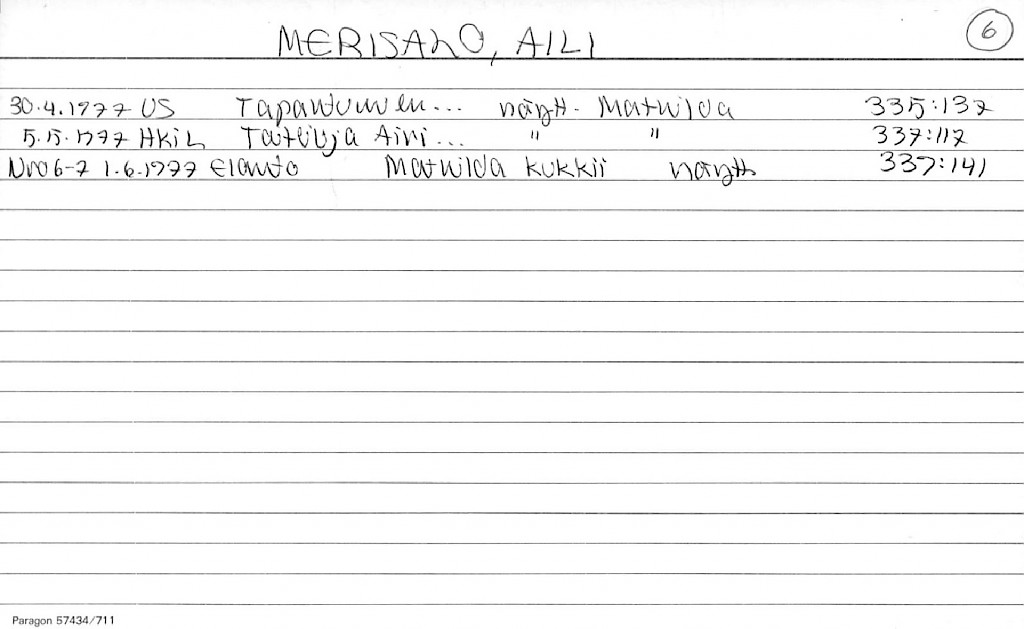 MERISALO, AILI
6
30.4.1977 US Tapahtumien... näytt. Mathilda 335:137
5.5.1977 HKiL Taiteilija Aili... " " 337:112
Nro 6-7 1.6.1977 Elanto Mathilda kukkii näytt. 337:141
Paragon 57434/711